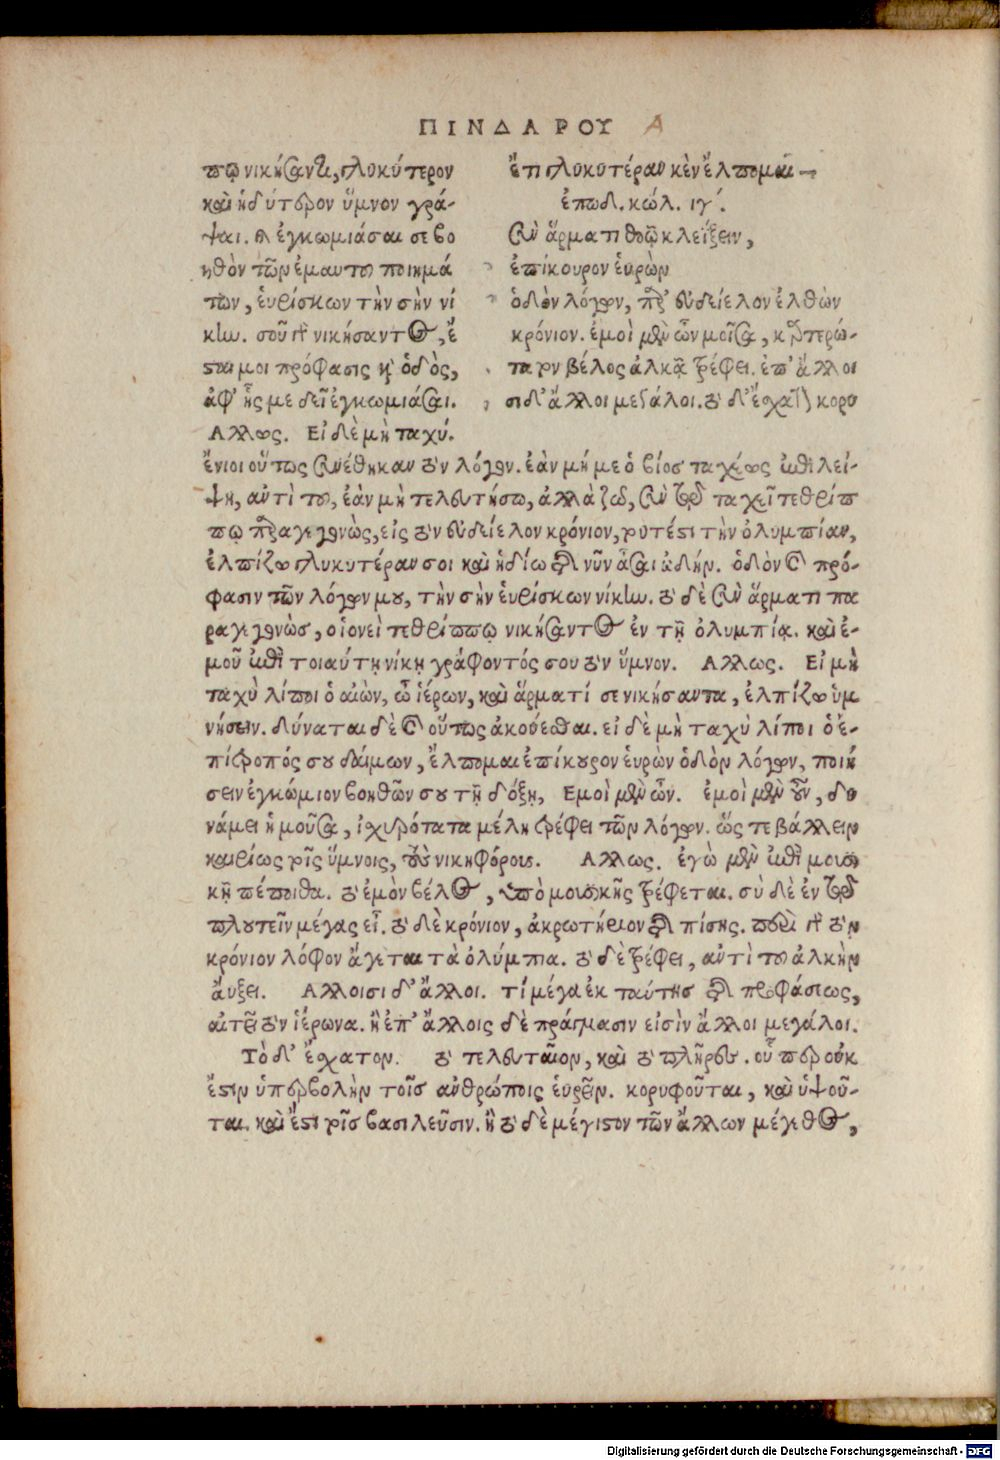 ΠΙΝΔΑΡΟΥ Α
πῳ νικήσαντα, γλυκύτερον
καὶ ἡδύτερον ὕμνον γρά-
ψαι. ἢ ἐγκωμιάσαι σε βο
ηθὸν τῶν ἐμαυτοῦ ποιημά
των, ἑυρίσκων τὴν σὴν νί
κην. σοῦ γὰρ νικήσαντος, ἔ
σται μοι πρόφασις καὶ ὁδὸς,
ἀφ' ἧς με δεῖ ἐγκωμιάσαι.
Αλλως. Εἰ δὲ μὴ ταχύ.
ἔτι γλυκυτέραν κὲν ἔλπομαι
ἐπωδ. κώλ. ιγ'.
σὺν ἅρματι θοῷ κλείξειν,
ἐπίκουρον ἑυρὼν
ὁδὸν λόγων, παρ' ἐυδείελον ἐλθὼν
κρόνιον. ἐμοὶ μὲν ὦν μοῖσα, καρτερώ-
τατον βέλος ἀλκᾷ τρέφει. ἐπ' ἄλλοι
σι δ' ἄλλοι μεγάλοι. τὸ δ' ἔσχατον κορυ
ἔνιοι οὕτως συνέθηκαν τὸν λόγον. ἐὰν μή με ὁ βίος ταχέως ἐπιλεί-
ψη, αὐτὶ τοῦ, ἐὰν μὴ τελευτήσω, ἀλλὰ ζῶ, σὺν τῷ ταχεῖ τεθρίπ
πῳ παραγεγονὼς, εἰς τὸν ἐυδείελον κρόνιον, τουτέστι τὴν ὀλυμπίαν,
ἐλπίζω γλυκυτέραν σοι καὶ ἡδίω τῶν νῦν ᾆσαι ὠδήν. ὁδὸν δὲ πρό-
φασιν τῶν λόγων μου, τὴν σὴν ἑυρίσκων νίκην. τὸ δὲ σὺν ἅρματι πα
ραγεγονὼς, οἱονεὶ τεθρίππῳ νικήσαντος ἐν τῇ ὀλυμπίᾳ. καὶ ἐ-
μοῦ ἐπὶ τοιαύτῃ νίκῃ γράφοντός σου τὸν ὕμνον. Αλλως. Εἰ μὴ
ταχὺ λίποι ὁ αἰὼν, ὦ ἱέρων, καὶ ἅρματί σε νικήσαντα, ἐλπίζω ὑμ
νήσειν. δύναται δὲ καὶ οὕτως ἀκούεσθαι. εἰ δὲ μὴ ταχὺ λίποι ὁ ἐ-
πίτροπός σου δαίμων, ἔλπομαι ἐπίκουρον ἑυρὼν ὁδὸν λόγων, ποιή
σειν ἐγκώμιον βοηθῶν σου τῇ δόξῃ, Εμοὶ μὲν ὦν. ἐμοὶ μὲν οὖν, δυ
νάμει ἡ μοῦσα, ἰσχυρότατα μέλη τρέφει τῶν λόγων. ὥς τε βάλλειν
καιρίως τοῖς ὕμνοις, τοὺς νικηφόρους. Αλλως. ἐγὼ μὲν ἐπὶ μουσι
κῇ πέποιθα. τὸ ἐμὸν βέλος, ὑπὸ μουσικῆς τρέφεται. σὺ δὲ ἐν τῷ
πλουτεῖν μέγας εἶ. τὸ δὲ κρόνιον, ἀκρωτήριον τῆς πίσης. περὶ γὰρ τὸν
κρόνιον λόφον ἄγεται τὰ ὀλύμπια. τὸ δὲ τρέφει, αὐτὶ τοῦ ἀλκὴν
ἄυξει. Αλλοισι δ' ἄλλοι. τί μέγα ἐκ ταύτης τῆς προφάσεως,
αἰτεῖ τὸν ἱέρωνα. ἢ ἐπ' ἄλλοις δὲ πράγμασιν εἰσὶν ἄλλοι μεγάλοι.
Τὸ δ' ἔσχατον. τὸ τελευταῖον, καὶ τὸ πλῆρες. οὗ περ οὐκ
ἔστιν ὑπερβολὴν τοῖς αὐθρώποις ἑυρεῖν. κορυφοῦται, καὶ ὑψοῦ-
ται. καὶ ἔστι τοῖς βασιλεῦσιν. ἢ τὸ δὲ μέγιστον τῶν ἄλλων μέγεθος,
Digitalisierung gefördert durch die Deutsche Forschungsgemeinschaft - DFG